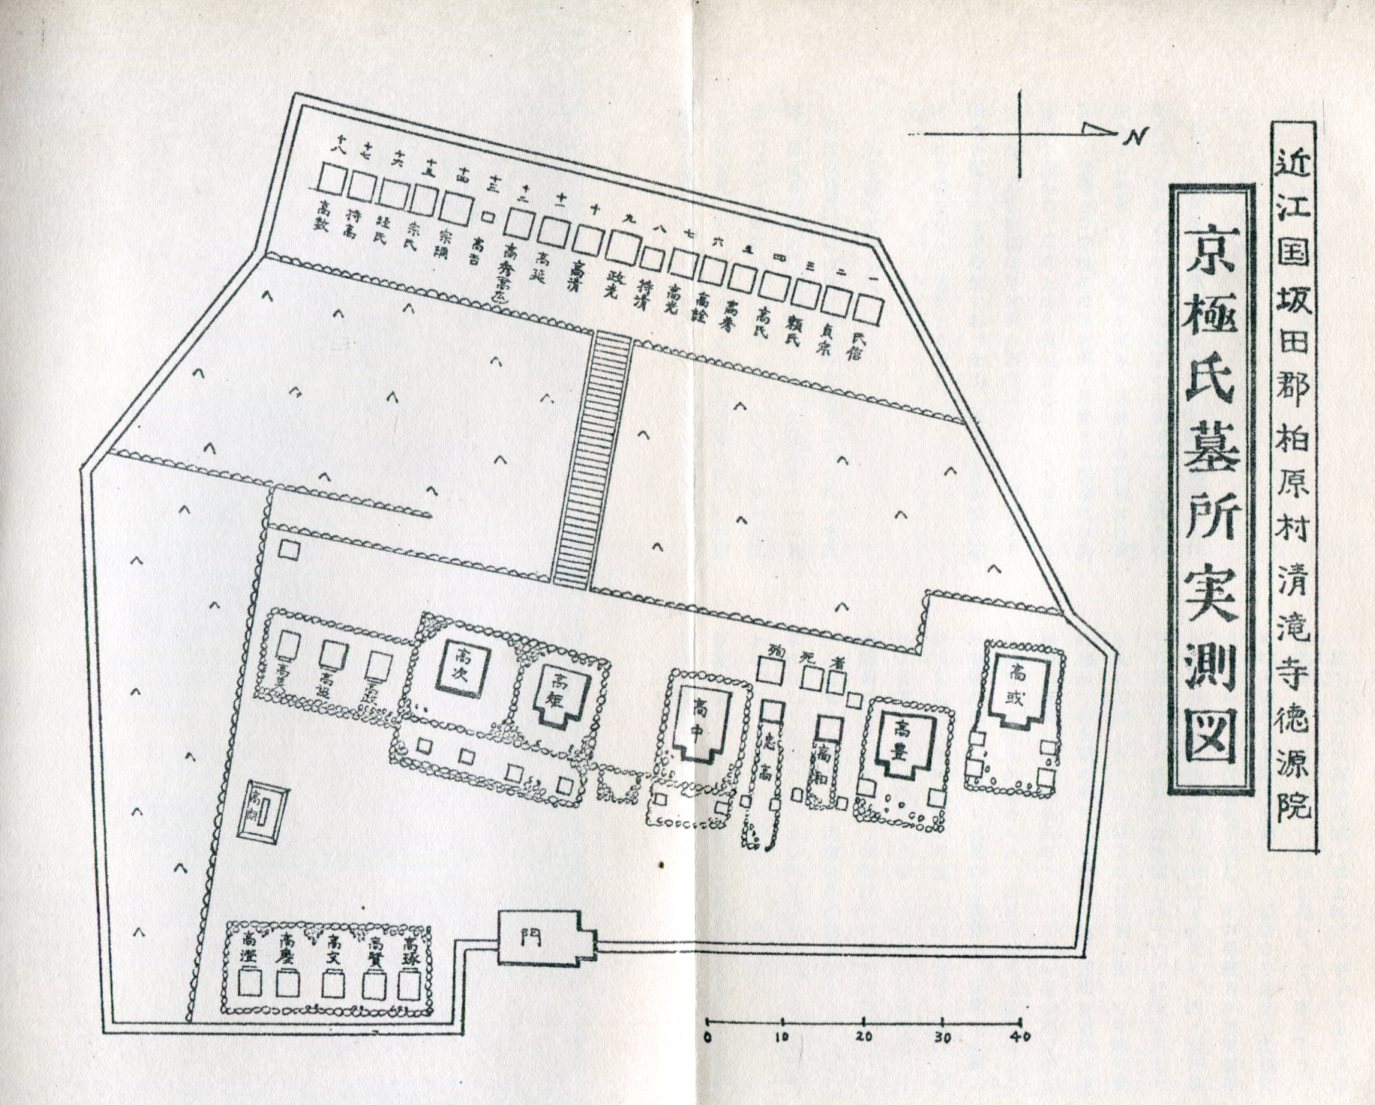 近江国坂田郡柏原村清滝寺徳源院
京極氏墓所実測図
N
一 氏信
二 貞宗
三 頼氏
四 高氏
五 高秀
六 高詮
七 高光
八 持清
九 政光
十 高清
十一 高延
十二
十三 高吉
十四
十五 宗氏
十六 経氏
十七 持高
十八 高数
殉死者
高或
高豊
高和
忠高
高中
高矩
高次
高朗
高琢
高賢
高文
高慶
高澄
門
0 10 20 30 40